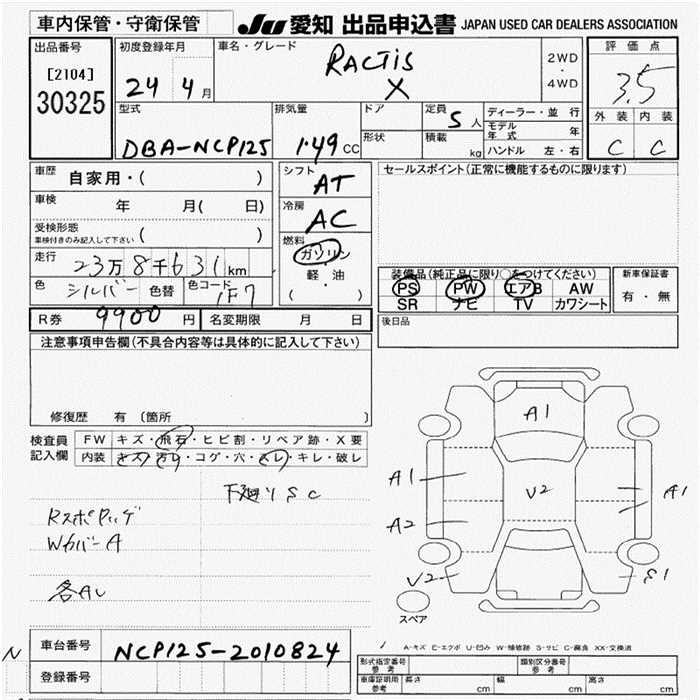 車内保管・守衛保管
JU 愛知 出品申込書 JAPAN USED CAR DEALERS ASSOCIATION
出品番号
[2104]
30325
初度登録年月
24 4月
車名・グレード
RACTIS
X
2WD
・
4WD
評価点
3.5
外装 内装
C C
型式
DBA-NCP125
排気量
1.49 CC
ドア
形状
定員
5人
積載
kg
ディーラー・並行
モデル年式 年
ハンドル 左・右
車歴
自家用・( )
車検
年 月( 日)
受検形態
車検付きのみ記入して下さい ( )
走行
23万8千631km
色
シルバー 色替
色コード
1F7
シフト
AT
冷房
AC
燃料
ガソリン
・
軽・油
( )
セールスポイント(正常に機能するものに限ります)
装備品(純正品に限り○をつけてください)
PS PW エアB AW
SR ナビ TV カワシート
新車保証書
有・無
後日品
R券 9900円
名変期限 月 日
注意事項申告欄(不具合内容等は具体的に記入して下さい)
修復歴 有 〔箇所 〕
検査員
記入欄
FW キズ・飛石・ヒビ割・リペア跡・X要
内装 キズ・汚れ・コゲ・穴・スレ・キレ・破レ
下廻りSC
Wカバー A
各AU
A1
A1
A2
V2
A1
A1
V2
S1
スペア
A-キズ E-エクボ U-凹み W-補修跡 S-サビ C-腐食 XX-交換済
N
車台番号
NCP125-2010824
登録番号
形式指定番号
参考
類別区分番号
参考
車庫証明用
参考
長さ cm
幅 cm
高さ cm